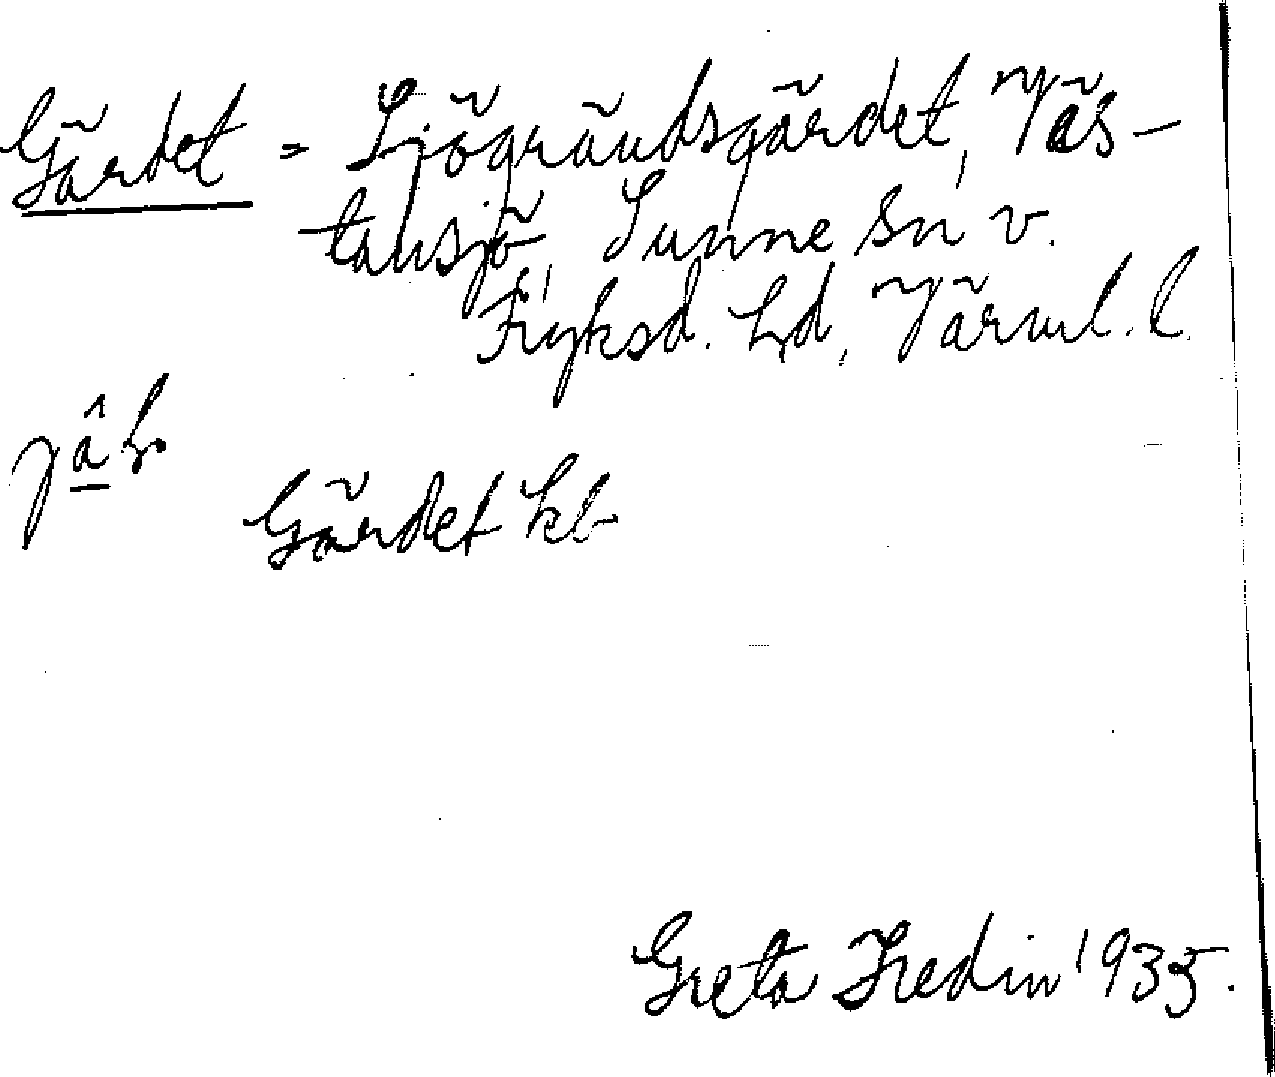 Gärdet = Sjögrändsgärdet, Väs-
tansjö, Sunne sn v.
Fryksd. hd, Värml. l.
Gärdet kb
Greta Hedin 1935.